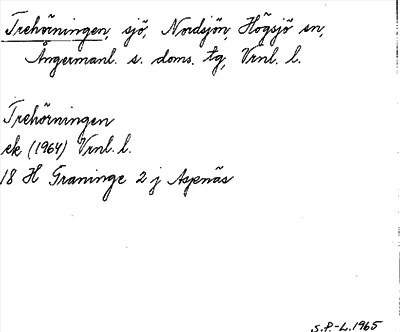 Trehörningen, sjö, Nordsjön, Högsjö sn,
Ångermanl. s. doms. tg, Vrnl. l.
Trehörningen
ek (1964) Vrnl. l.
18 H Graninge 2 j Aspnäs
S.P.-L. 1965